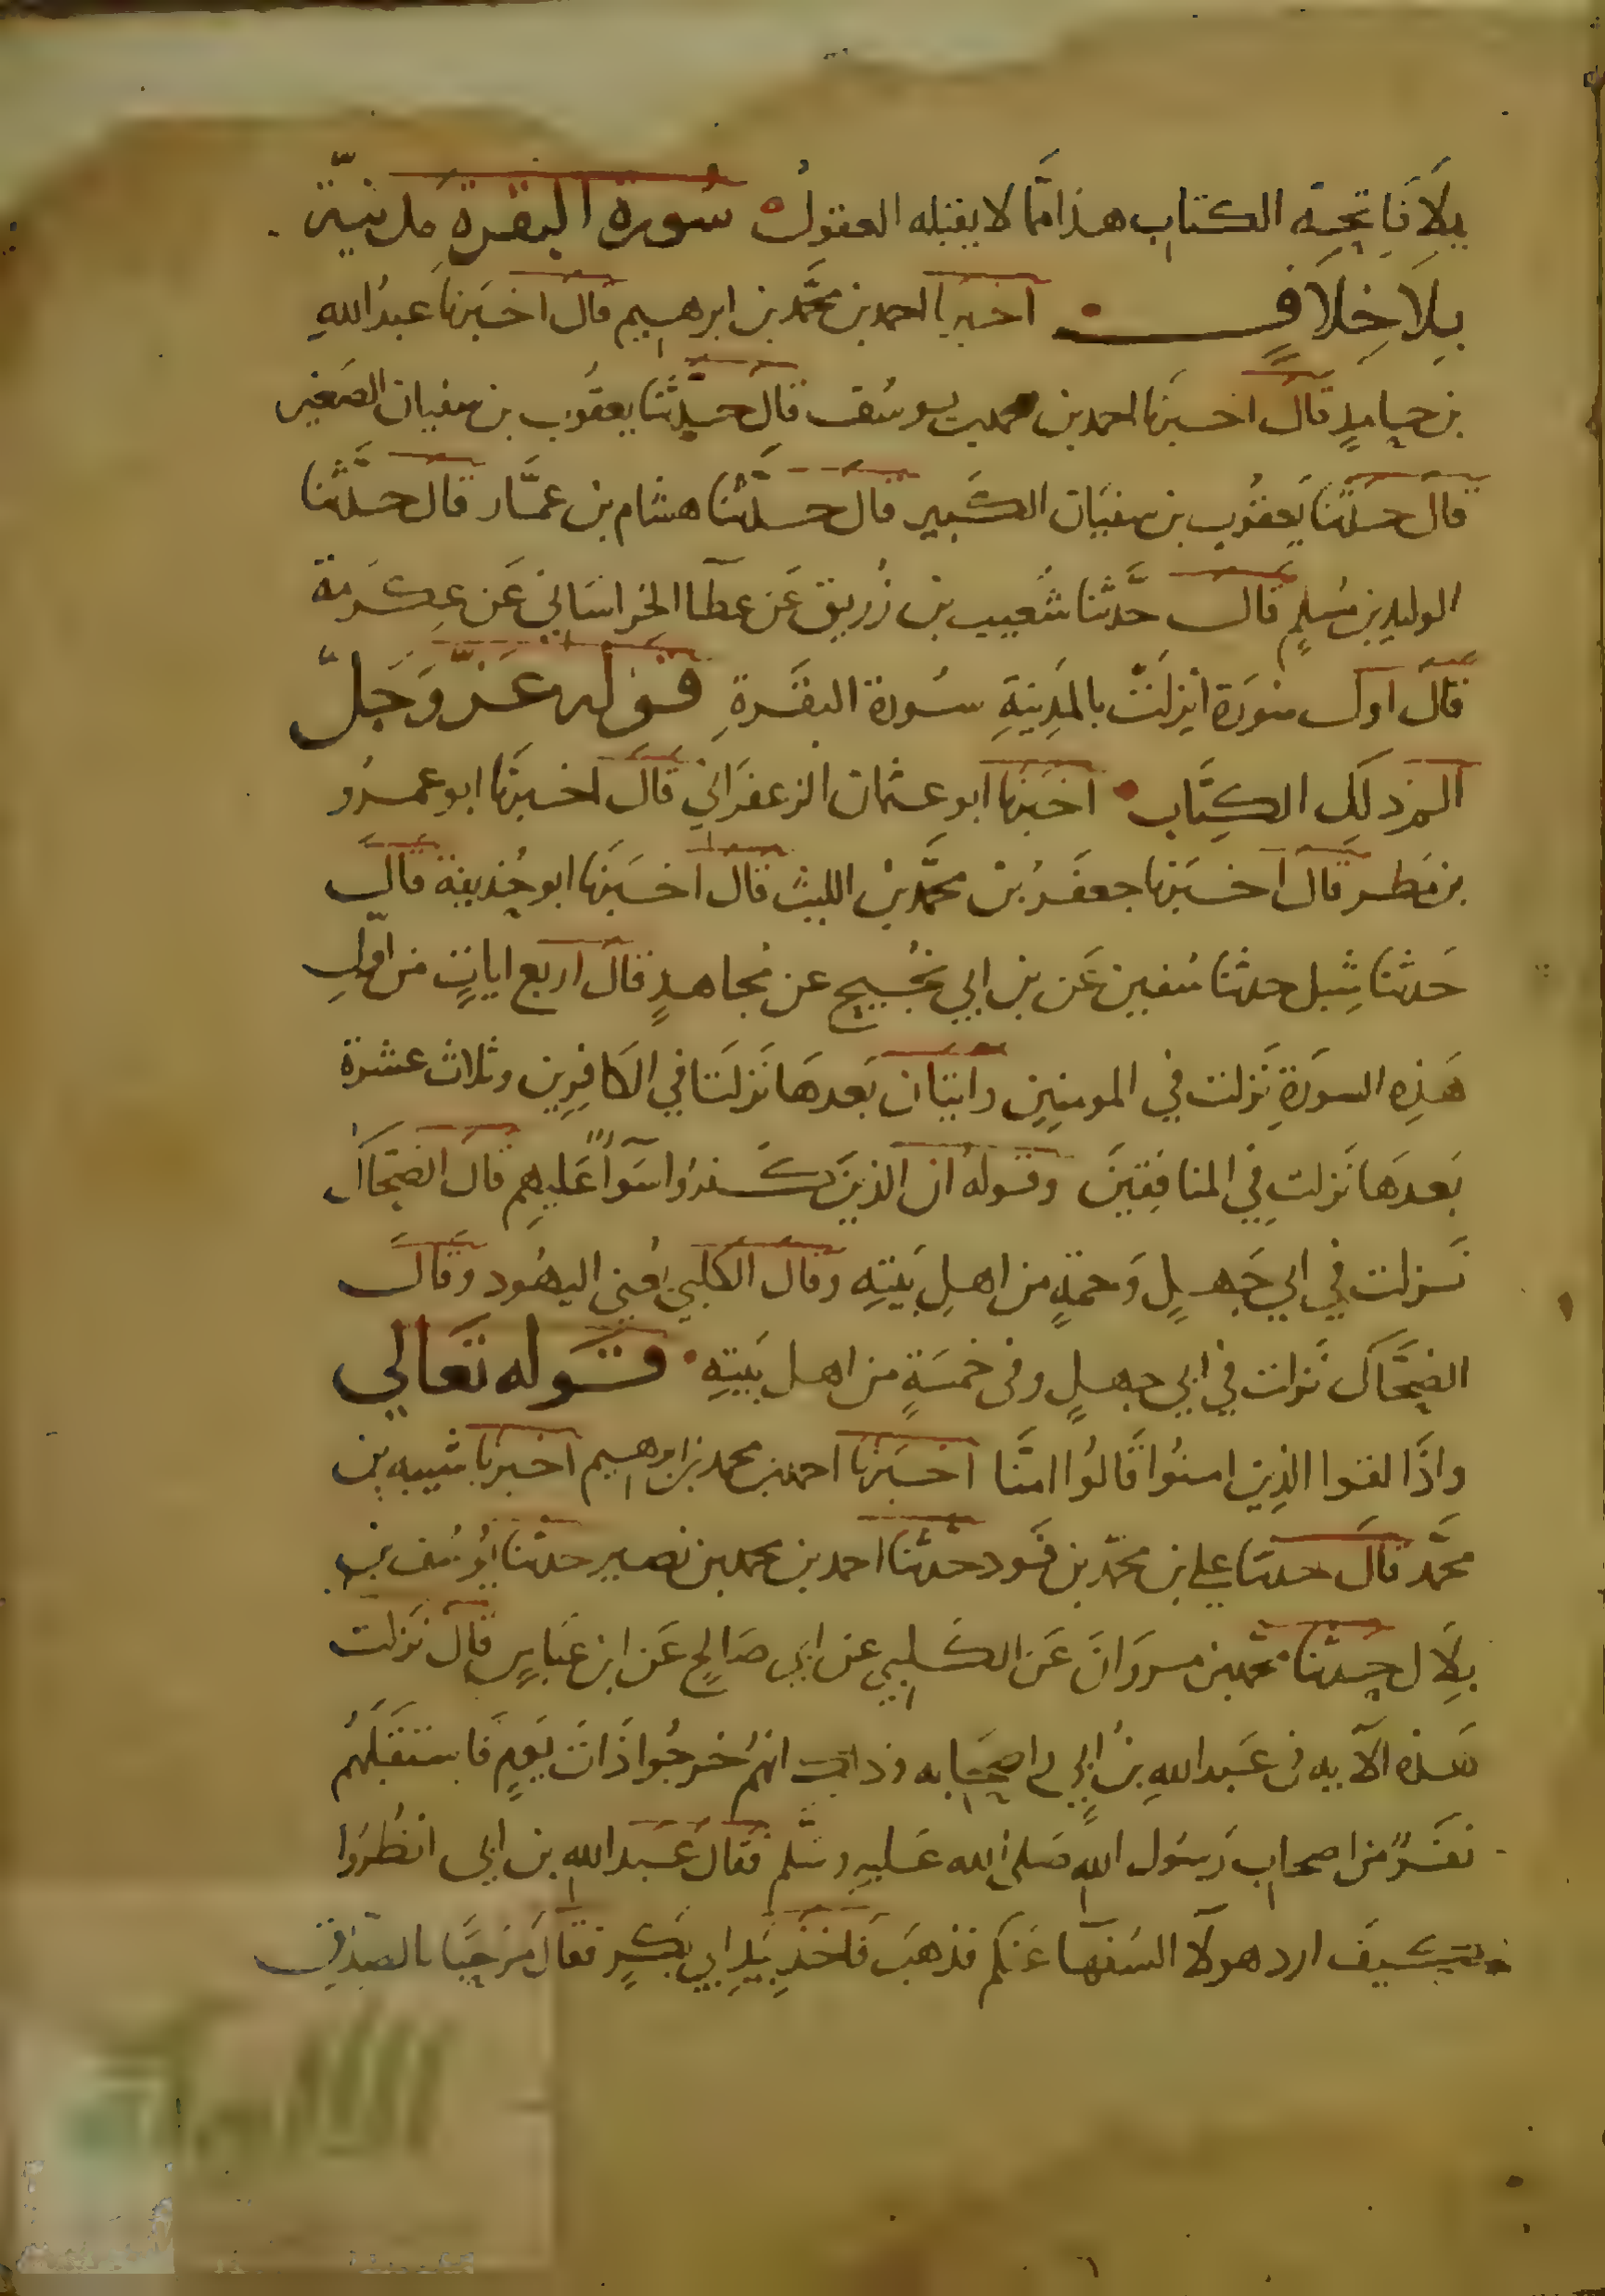 بِلَا فَاتِحِةِ الكتاب هذا ممَّا لا يقبله العقولُ سُورة البقرةِ مدنيّة
بِلَا خِلَافٍ اخبرنا احمد بن محمَّد بن ابرهيم قال اخبَرنا عبدُ اللهِ
بن حامدٍ قال اخبرنا احمد بن محمد بن يوسُف قال حدَّثنا يعقُوب بن سفيان الصَغير
قال حدثنا يَعقُوب بن سفيَان الكَبير قال حدَّثنا هشام بن عمَّار قال حدَّثنا
الوليد بن مُسلمٍ قال حدَّثنا شُعيب بن زُريق عَن عطآ الخراسَاني عَن عِكرمة
قالَ اول سُورَة اُنزِلَتْ بالمَدِينَةِ سُورة البقَرةِ قوله عَزَّ وَجَلّ
الم ذلِكَ الكِتَاب اخبَرنا ابو عثمان الزعفرَاني قالَ اخبرنَا ابو عمرُو
بن مَطر قال اخبَرنا جعفرُ بن محمَّد بن الليث قال اخبَرَنا ابو حُذيفة قال
حَدثنا شِبل حدثنا سُفين عَن بن ابي نَجُيح عن مُجاهدٍ قال اربع اياتٍ من اولِ
هَذِه السورَةِ نَزلت في المومنِين وايتان بَعدهَا نَزلَتا في الكَافِرِين وثلاث عشرة
بَعدهَا نَزلت فِي المنافِقينَ وقوله ان الذينَ كفرُوا سَوآ عَليهِم قال الضحَّاك
نَزلت في ابي جَهلٍ وَخمسةٍ من اهلِ بَيتهِ وقال الكلبي يُعني اليهُود وقالَ
الضحَّاك نَزلت في ابي جهلٍ وفى خمسَةٍ من اهل بَيتهِ قوله تعَالي
واذَا لقوا الذِين امنُوا قَالُوا امنَّا اخبَرنا احمد بن محمد بن ابرهيم اخبرنا شيبه بن
محمَّد قالَ حدثنا علي بن محمّد بن قَود حدَّثنا احمد بن محمد بن نصير حدثنا يُوسُف بن
بِلَال حدثنا محمد بن مروَانَ عَن الكَلبي عن ابي صَالحٍ عَن ابن عَباسٍ قال نَزلت
هَذه الآيه في عَبد اللهِ بنُ ابي واصحَابه وذلك انهُم خرجُوا ذَاتَ يَومٍ فَاستَقبَلَهُم
نَفَرٌ من اصحاب رَسُول اللهِ صَلى الله عَليهِ وسَّلم فقالَ عَبد الله بن ابى انظُرُوا
كَيفَ ارد هولآ السَفهآ عَنكم فذهبَ فَاخذ بِيَدِ ابي بَكرٍ فقالَ مَرحبًا بالصدّيق